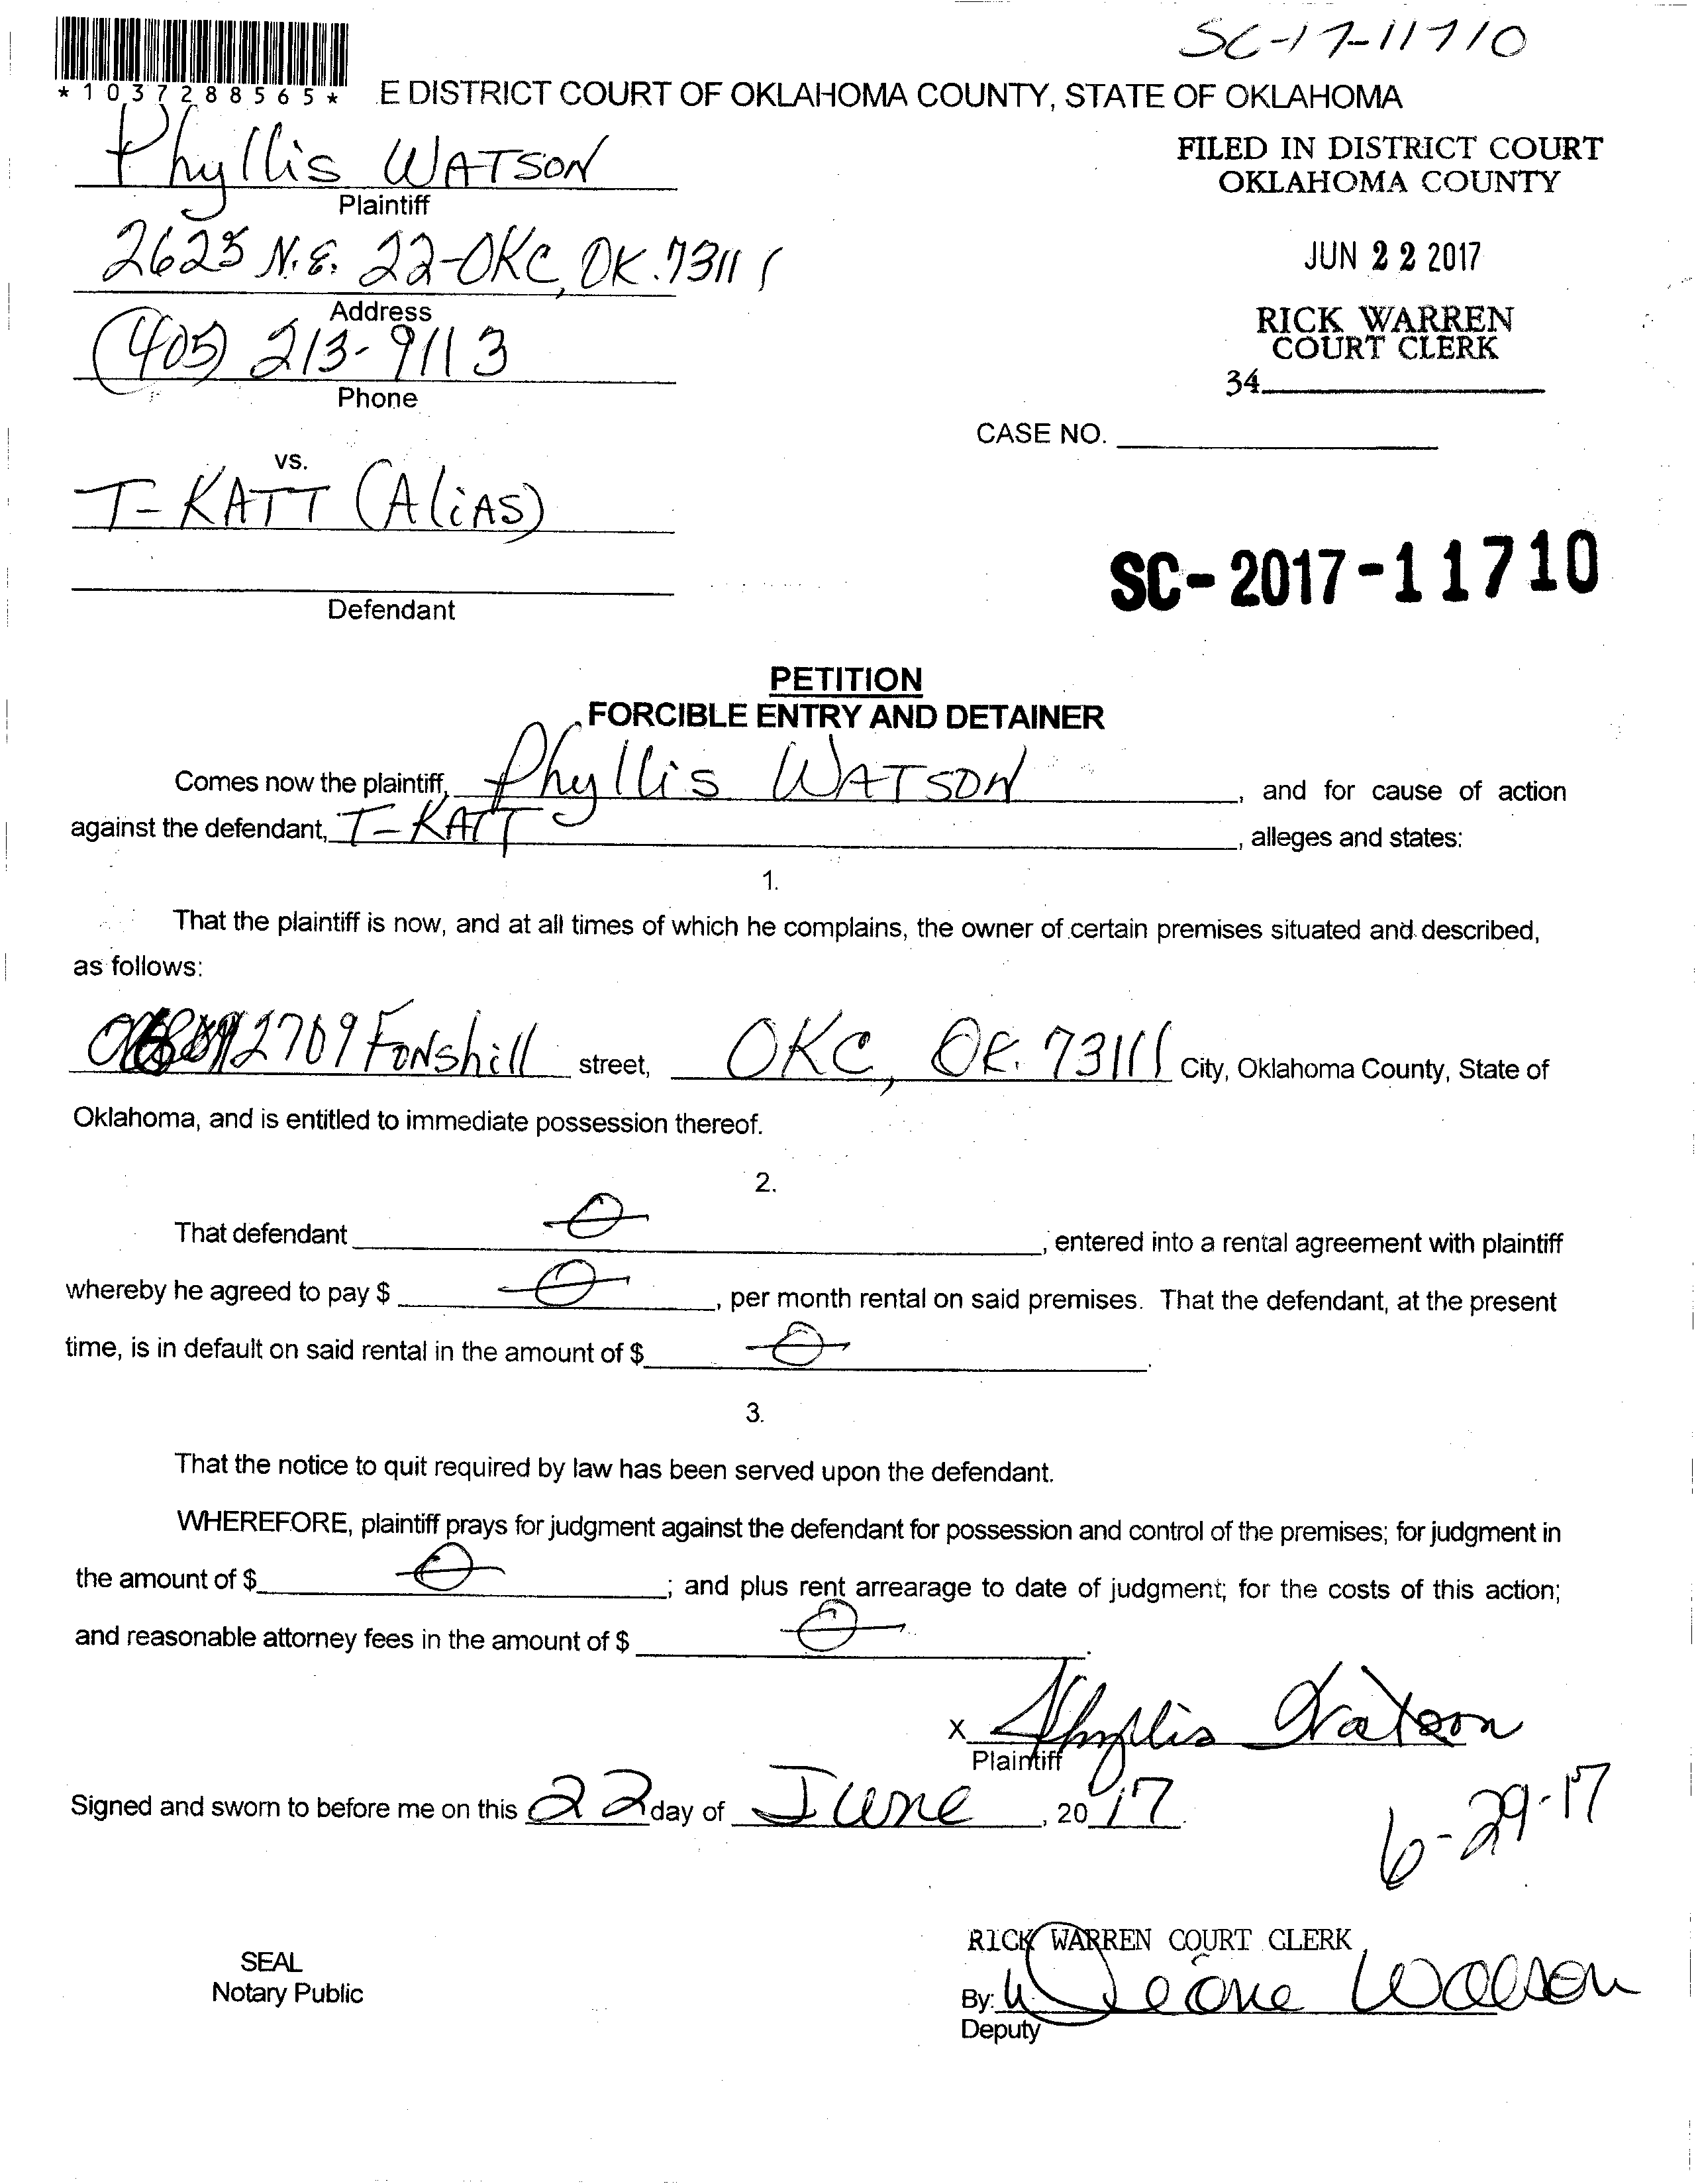 SC-17-11710
*1037288565*
E DISTRICT COURT OF OKLAHOMA COUNTY, STATE OF OKLAHOMA
Phyllis WATSON
Plaintiff
FILED IN DISTRICT COURT
OKLAHOMA COUNTY
2625 N.E. 22-OKC, OK. 73111
Address
JUN 22 2017
(405) 213-9113
Phone
RICK WARREN
COURT CLERK
34
CASE NO.
vs.
T-KATT (ALiAS)
Defendant
SC-2017-11710
PETITION
FORCIBLE ENTRY AND DETAINER
Comes now the plaintiff, Phyllis WATSON, and for cause of action
against the defendant, T-KATT, alleges and states:
1.
That the plaintiff is now, and at all times of which he complains, the owner of certain premises situated and described,
as follows:
2709 Fonshill street, OKC, OK. 73111 City, Oklahoma County, State of
Oklahoma, and is entitled to immediate possession thereof.
2.
That defendant 0, entered into a rental agreement with plaintiff
whereby he agreed to pay $ 0, per month rental on said premises. That the defendant, at the present
time, is in default on said rental in the amount of $ 0.
3.
That the notice to quit required by law has been served upon the defendant.
WHEREFORE, plaintiff prays for judgment against the defendant for possession and control of the premises; for judgment in
the amount of $ 0; and plus rent arrearage to date of judgment; for the costs of this action;
and reasonable attorney fees in the amount of $ 0.
X Phyllis Watson
Plaintiff
Signed and sworn to before me on this 22 day of June, 2017.
6-29-17
RICK WARREN COURT CLERK
SEAL
Notary Public
By:
Deputy